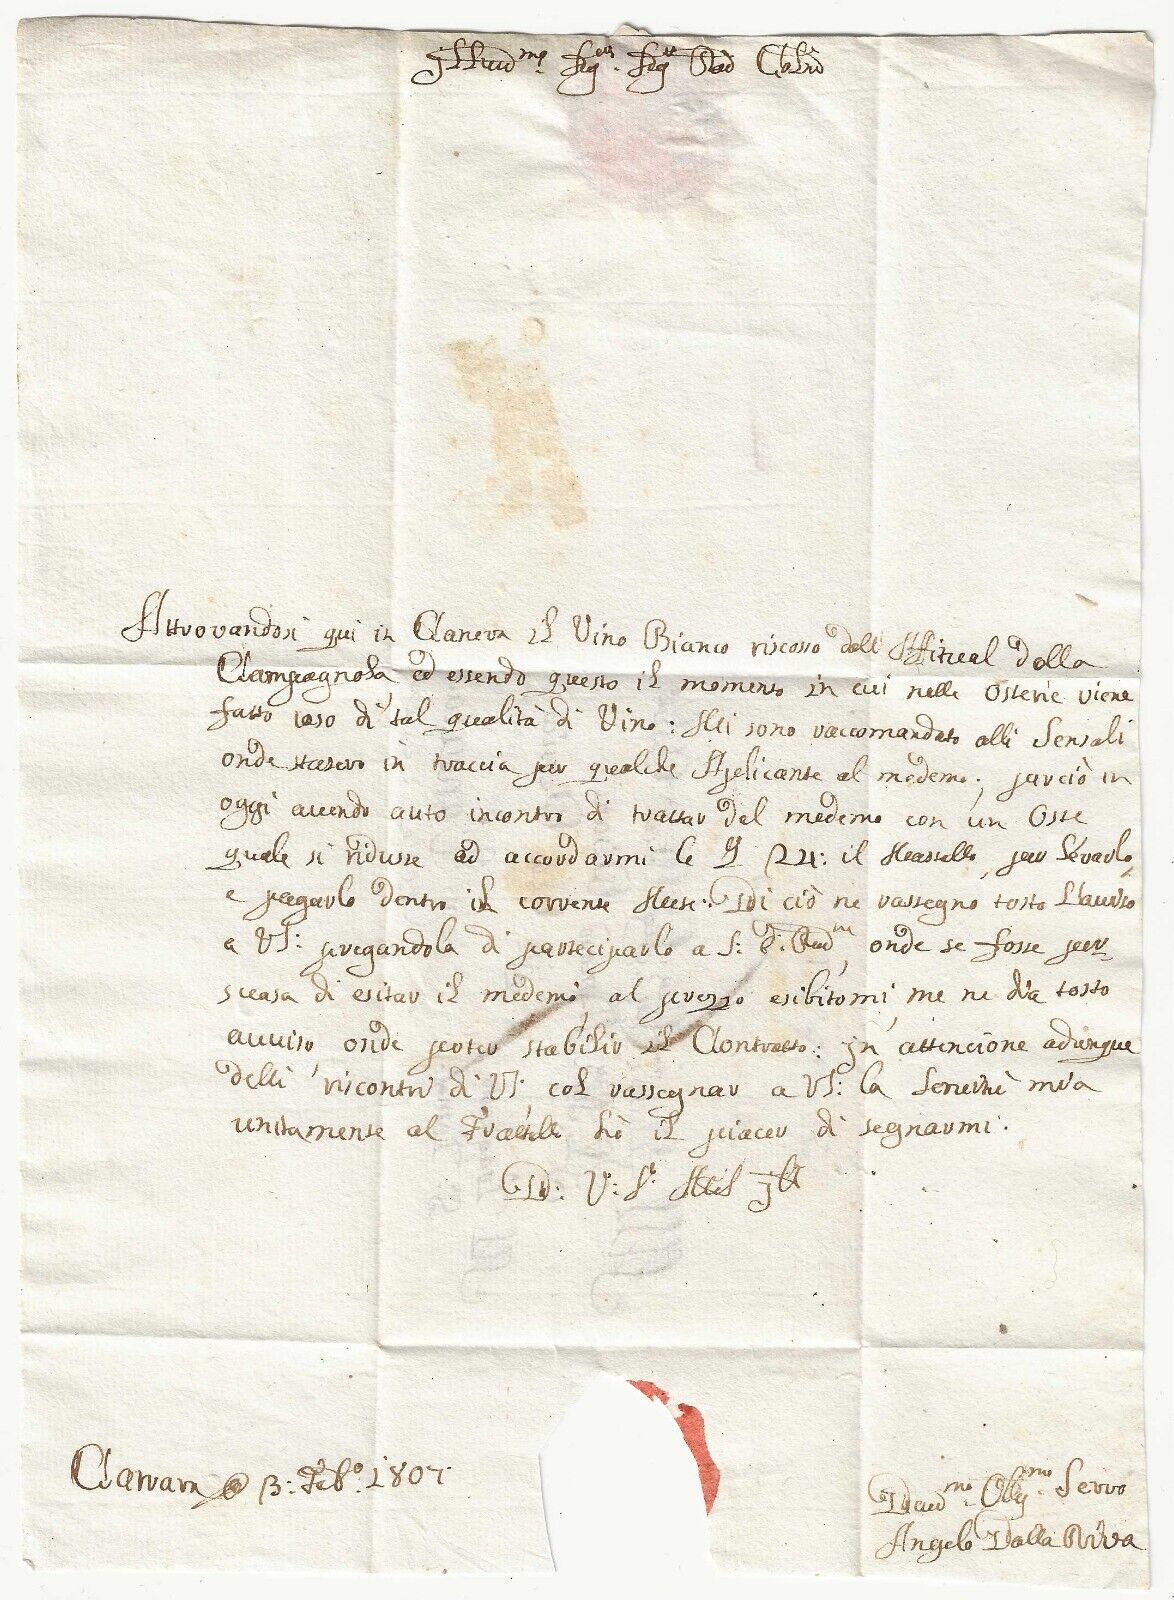 Illus.mo Sig.r Sig.r Pad Colmo
Attrovandosi qui in Caneva il Vino Bianco riscosso dall' Affitual della
Campagnola ed essendo questo il momento in cui nelle Osterie viene
fatto uso di tal qualità di Vino: Mi sono raccomandato alli Sensali
onde stasero in traccia per qualche Aplicante al medemo; perciò in
oggi avendo auto incontro di trattar del medemo con un Oste
quale si ridusse ad accordarmi le 24: il Mastello, per levarlo,
e pagarlo dentro il corrente Mese: Di ciò ne rassegno tosto l'auviso
a VS: pregandola di parteciparlo a S: onde se fosse per-
suasa di esitar il medemo, al prezzo esibitomi, me ne dia tosto
auviso, onde poter stabilir il Contratto: In attencione adunque
delli riscontri di VS: col rassegnar a VS: la Servitù mia
unitamente al Fratello hò il piacer di segnarmi.
D: V: S: Ill
Carrara @ 3: Feb.o 1807
Deuo.mo Obb.mo Servo
Angelo Dalla Riva